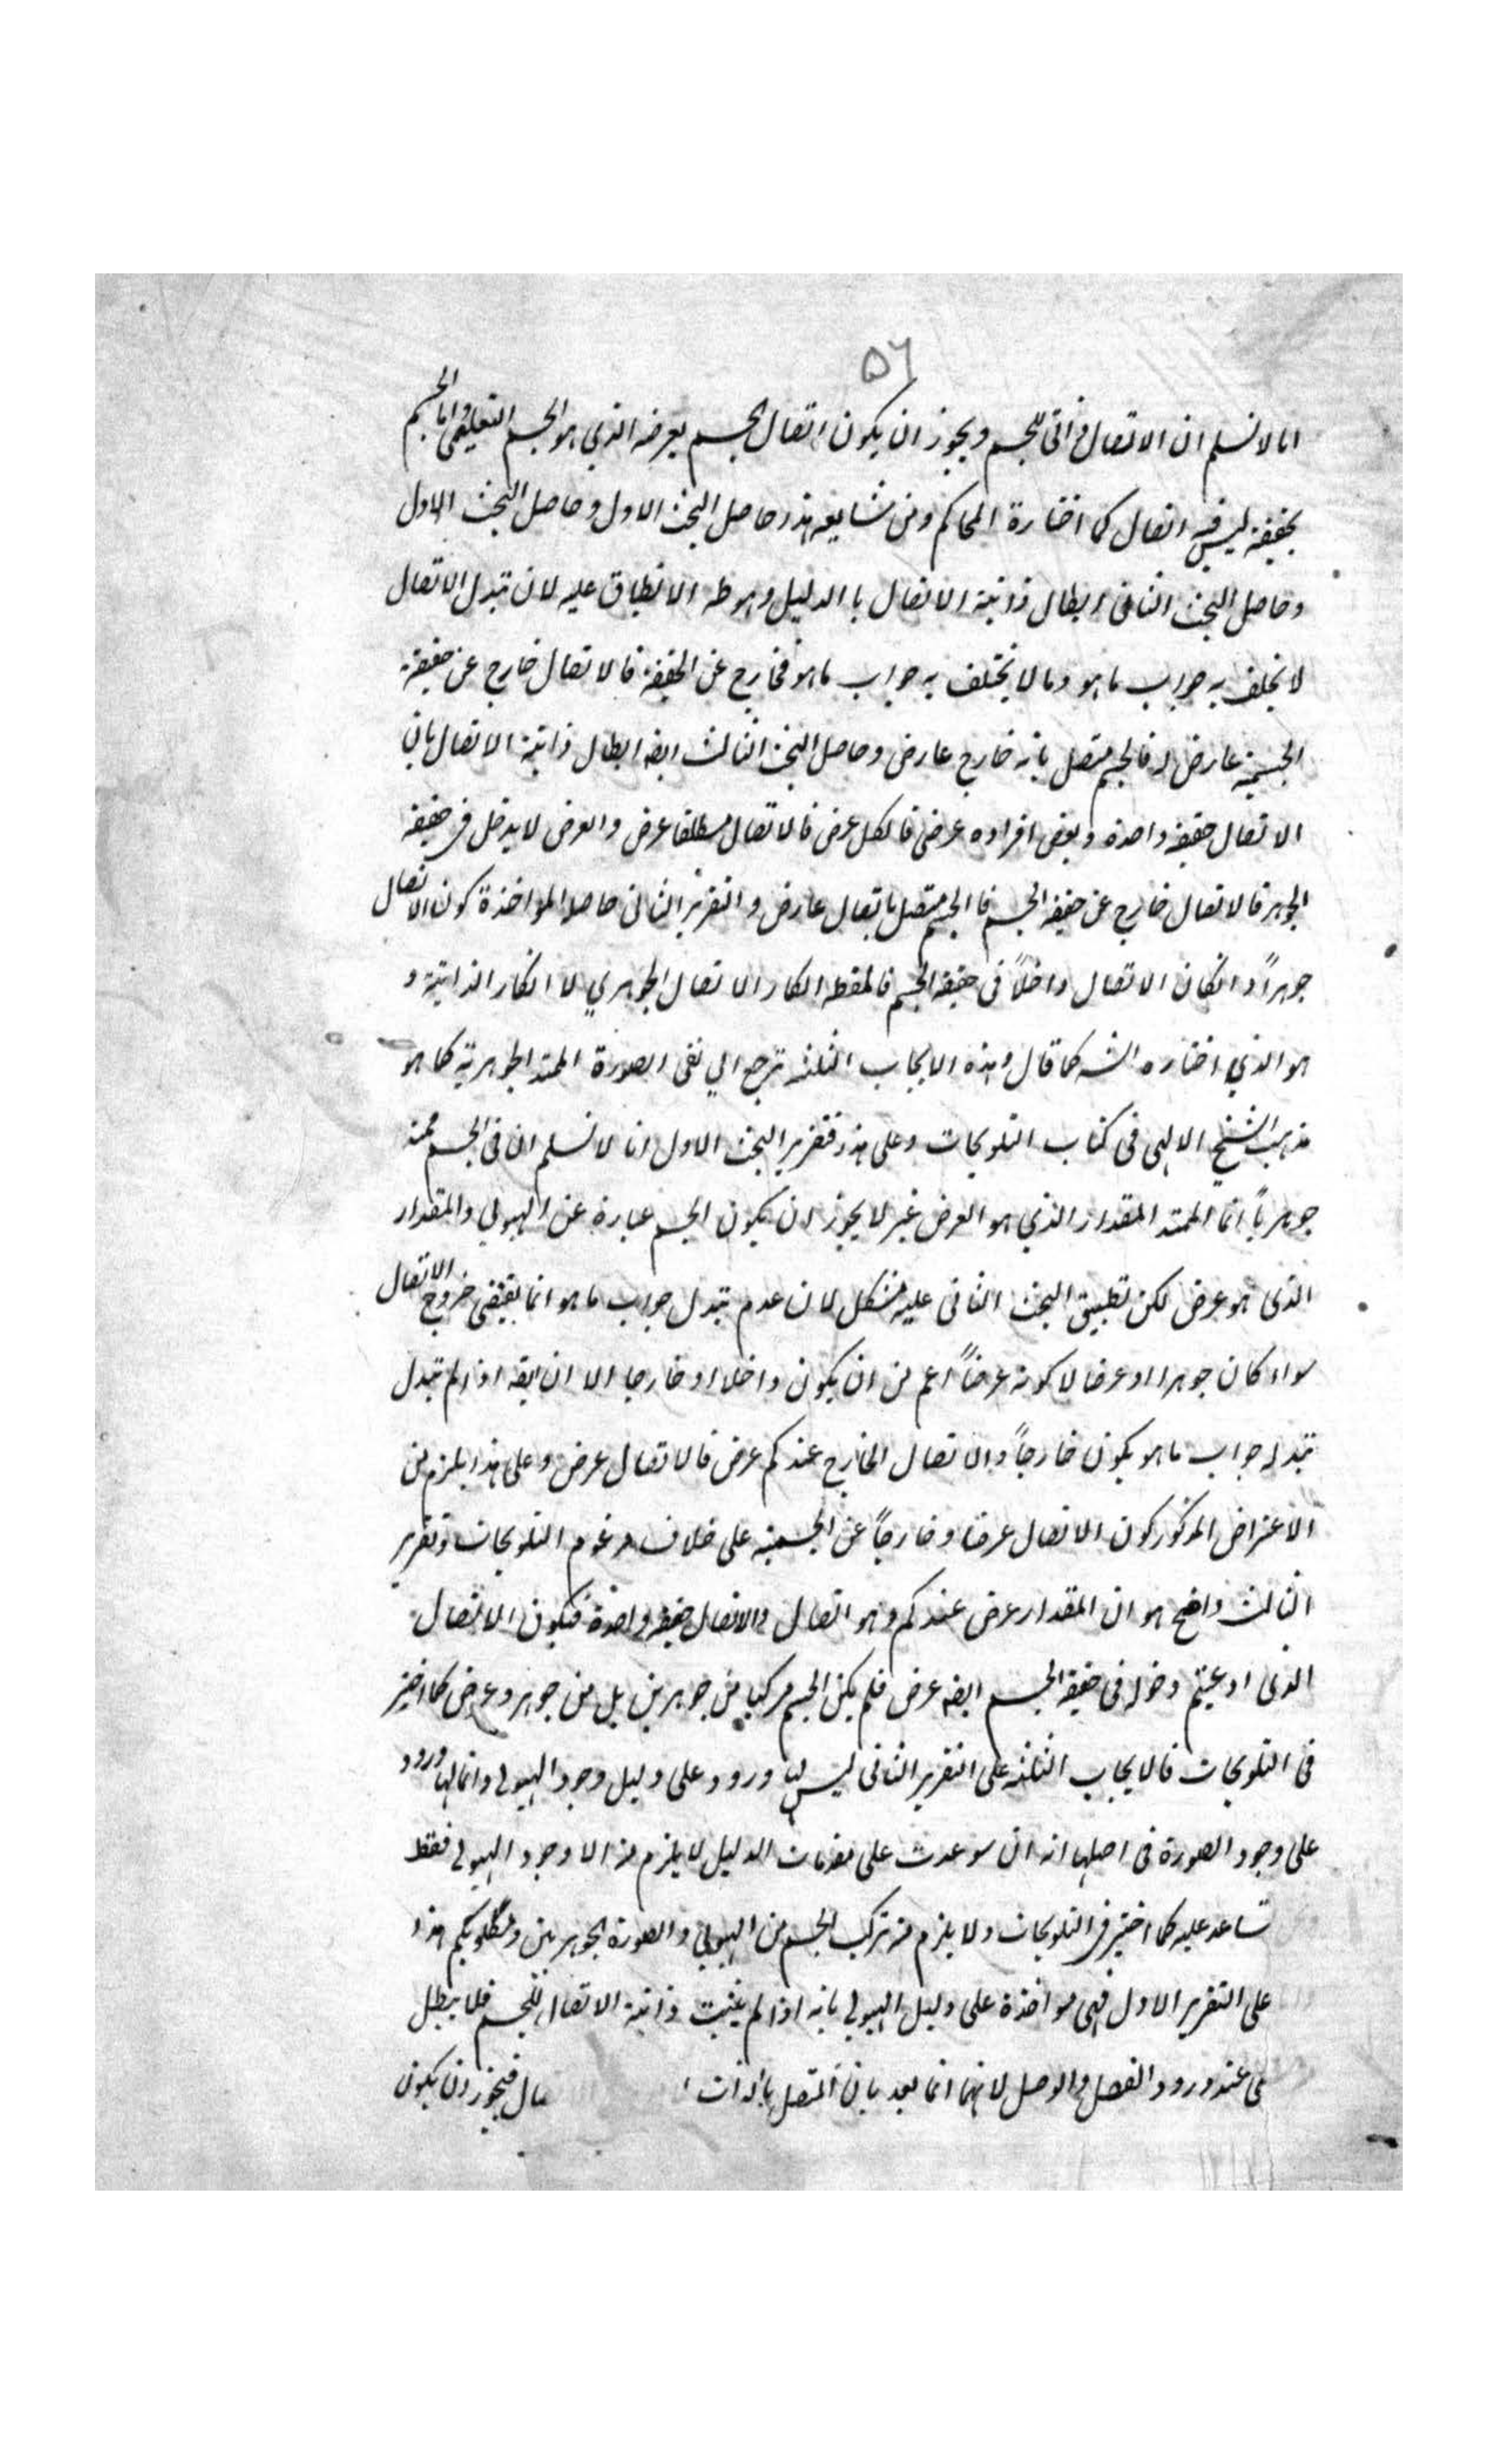 ٥٦
انا لا نسلم ان الاتصال ذاتى للجسم ويجوز ان يكون اتصال الجسم بعرضه الذي هو الجسم التعليمى واما الجسم
بحقيقته ليس فيه اتصال كما اختاره المحاكم ومن تشايعه هذا حاصل البحث الاول وحاصل البحث الاول
وحاصل البحث الثانى ابطال ذاتية الاتصال با الدليل وهو ظه الانطباق عليه لان تبدل الاتصال
لا يختلف به جواب ما هو وما لا يختلف به جواب ما هو فخارج عن الحقيقة فالاتصال خارج عن حقيقة
الجسمية عارض له فالجسم متصل بانه خارج عارض وحاصل البحث الثالث ايضه ابطال ذاتية الاتصال بان
الاتصال حقيقة واحدة وبعض افراده عرض فالكل عرض فالاتصال مطلقا عرض والعرض لا يدخل فى حقيقة
الجوهر فالاتصال خارج عن حقيقة الجسم فا الجسم متصل باتصال عارض والتقرير الثانى حاصله المواخذة كون الاتصال
جوهراً وانكان الاتصال داخلاً فى حقيقة الجسم فالمقطه انكار الاتصال الجوهري لا انكار الذاتية و
هو الذي اختاره الشه كما قال وهذه الابحاب الثلثه ترجع الي نفى الصورة الممتد الجوهرية كما هو
مذهب الشيخ الالهى فى كتاب التلويحات وعلى هذا فتقرير البحث الاول انا لا نسلم ان فى الجسم ممتد
جوهرياً انما الممتد المقدار الذي هو العرض غير لا يجوز ان يكون الجسم عبارة عن الهيولي والمقدار
الذى هو عرض لكن تطبيق البحث الثانى عليه مشكل لان عدم تبدل جواب ما هو انما يقتضى خروج الاتصال
سواء كان جوهرا او عرضا لا كونه عرضاً اعم من ان يكون داخلا او خارجا الا ان يقه اذا لم تبدل
تبدله جواب ما هو يكون خارجاً والاتصال الخارج عندكم عرض فالاتصال عرض وعلى هذا يلزم من
الاعتراض المذكور كون الاتصال عرضا وخارجاً عن الجسمية على خلاف مزعوم التلويحات وتقرير
الثالث واضح هو ان المقدار عرض عندكم وهو اتصال والاتصال حقيقة واحدة فيكون الاتصال
الذى ادعيتم دخوله فى حقيقة الجسم ايضه عرض فلم يكن الجسم مركبا من جوهرين بل من جوهر وعرض كما اختير
فى التلويحات فالابحاب الثلثه على التقرير الثانى ليس لها ورود على دليل وجود الهيولى وانما لها ورود
على وجود الصورة فى اصلها انه ان سوعدت على مقدمات الدليل لا يلزم منه الا وجود الهيولى فقط
تساعد عليه كما اختير فى التلويحات ولا يلزم منه تركب الجسم من الهيولي والصورة الجوهرين ومطلوبكم هذا
على التقرير الاول فهى مواخذة على دليل الهيولي بانه اذا لم يثبت ذاتية الاتصال للجسم فلا يبطل
عند ورود الفصل والوصل لانهما انما بعد بان المتصل بالذات فيجوز ان يكون